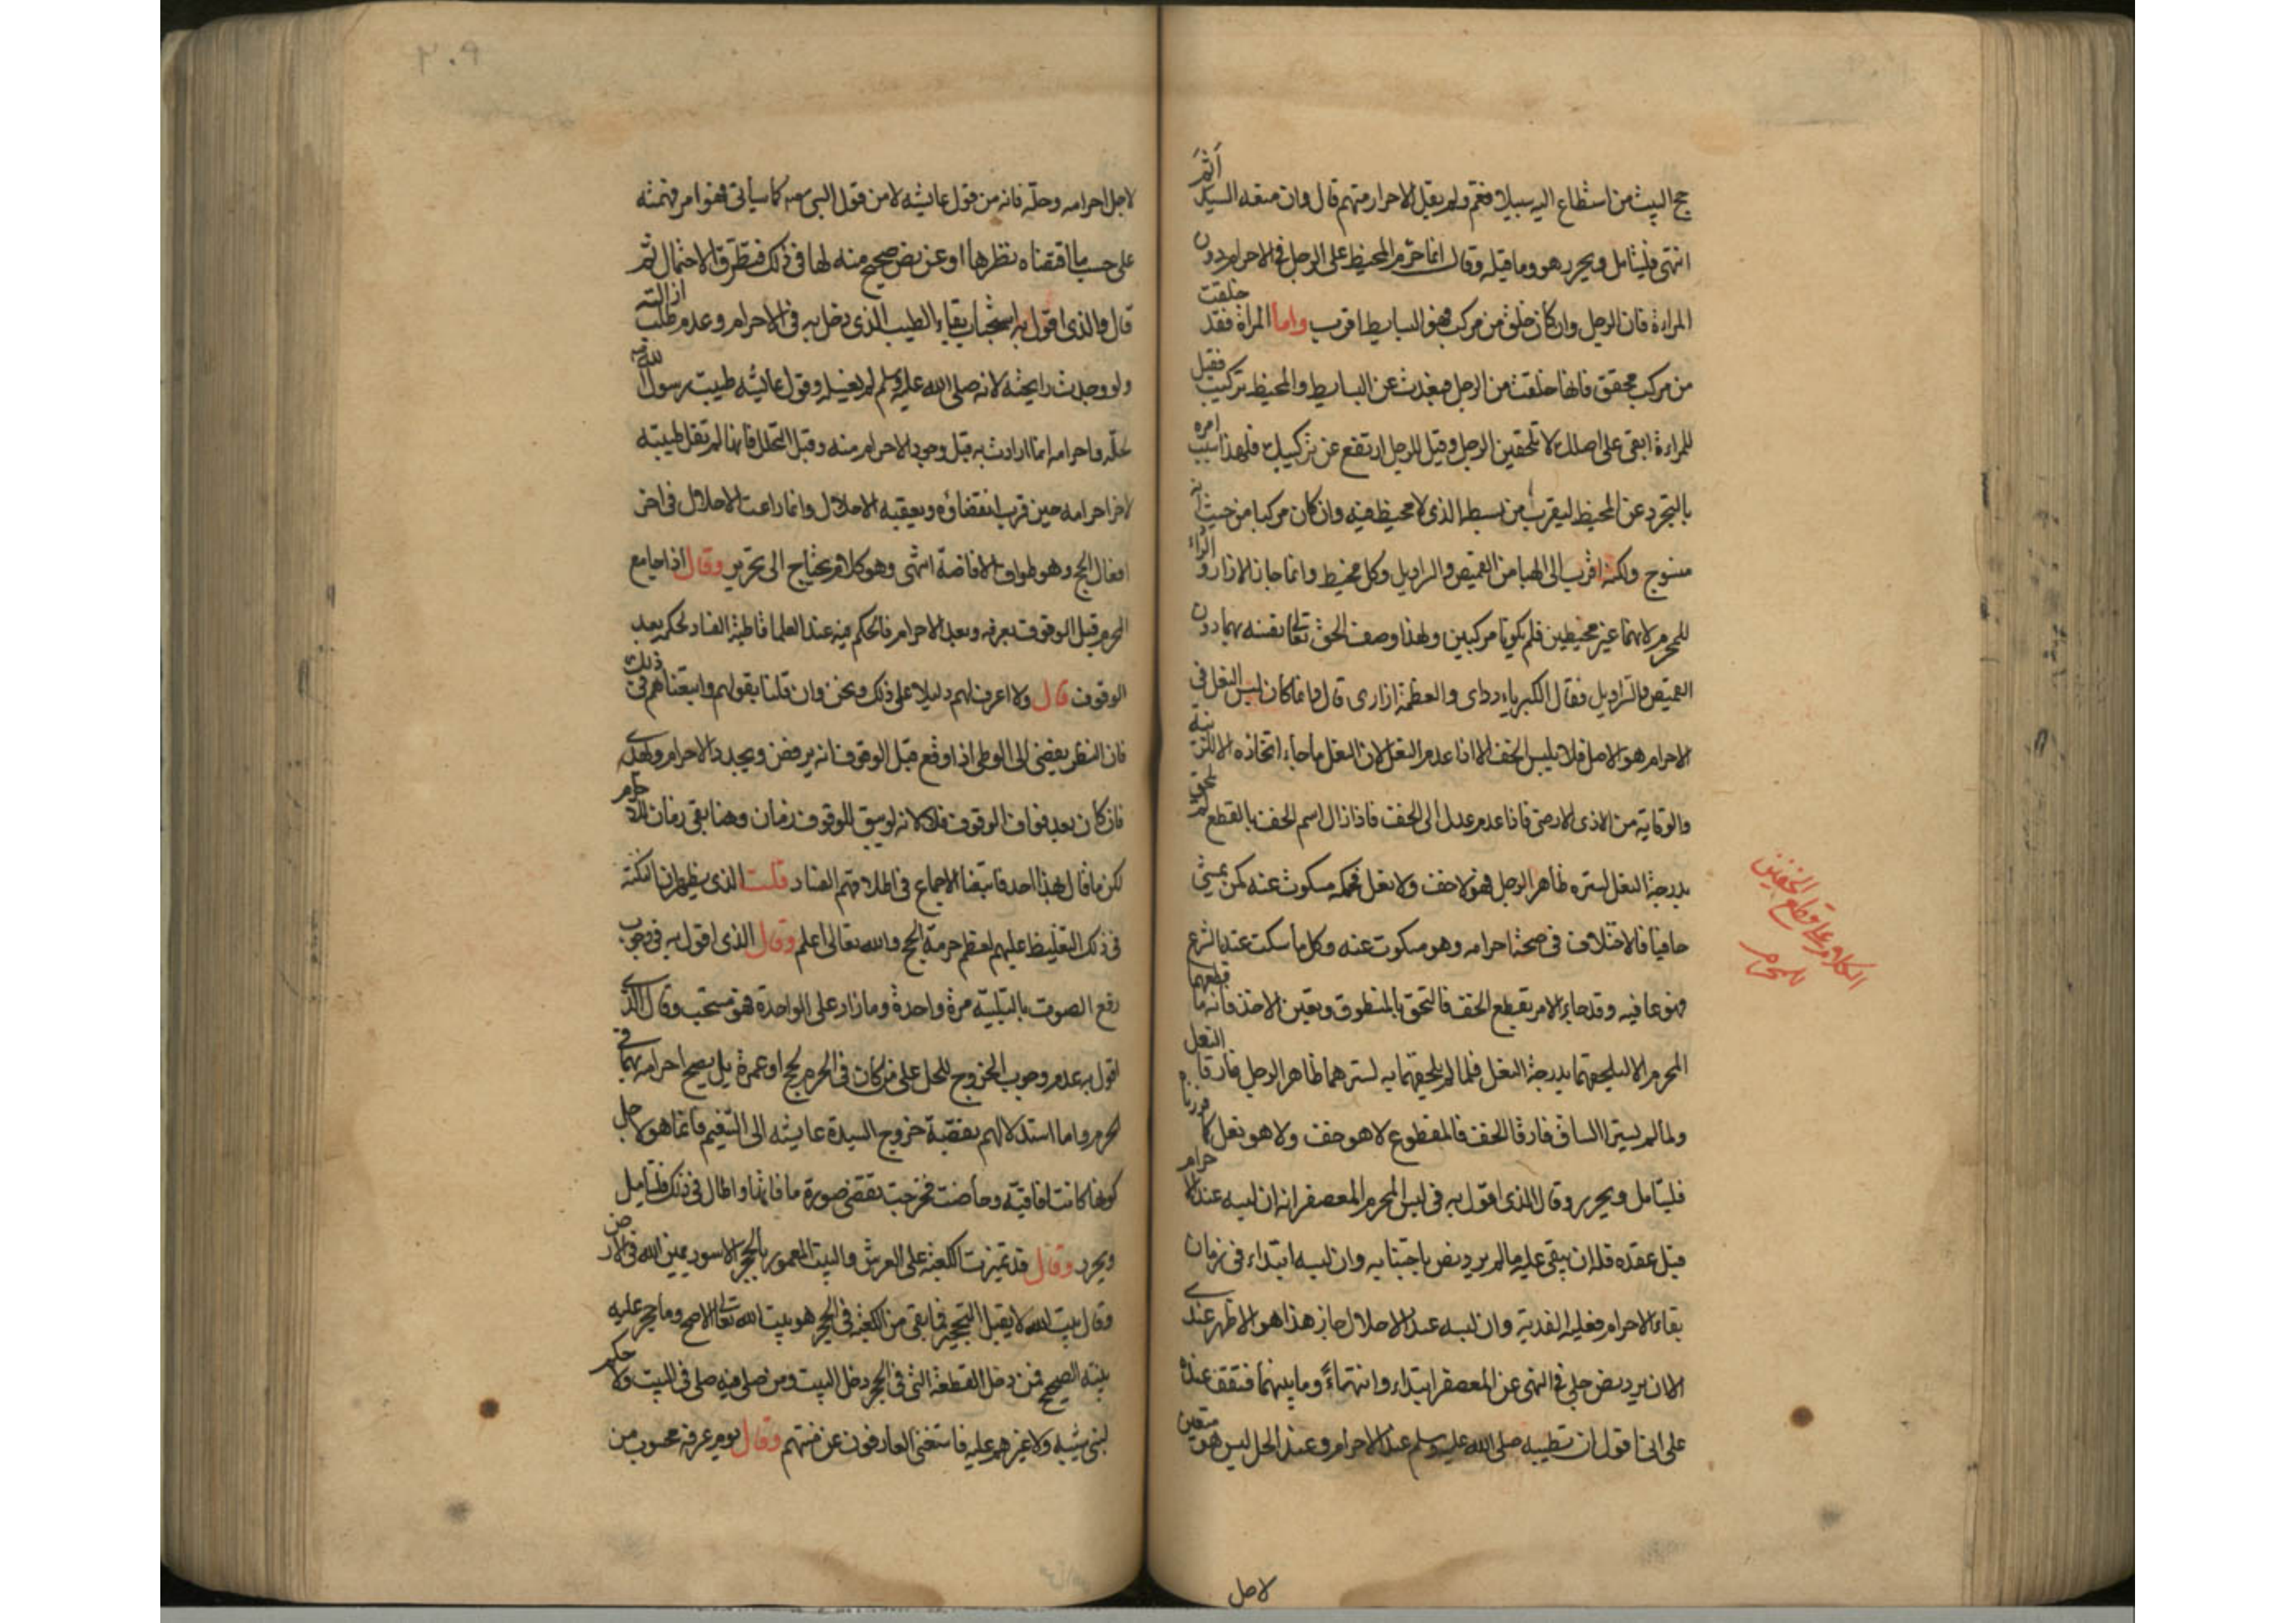 حج البيت من استطاع اليه سبيلا فعم ولم يقل الاحرار منهم قال وان منعه السيد اثم
انتهى فليتامل ويحرر هو وما قبله وقال انما حرم المحيط على الرجل في الاحرام دون
المراءة فان الرجل وان كان خلق من مركب فهو الى البسايط اقرب واما المراة فقد خلقت
من مركب محقق فانها خلقت من الرجل فبعدت عن البسايط والمخيط تركيب فقيل
للمراءة ابقى على اصلك لا تلحقين الرجل وقيل للرجل ارتفع عن تركيبك فلهذا سبب امره
بالتجرد عن المخيط ليقرب من بسيطه الذي لا مخيط فيه وان كان مركبا من حيث انه
منسوج ولكنه اقرب الى الهبا من القميص والسراويل وكل مخيط وانما جاز الازار والرداء
للمحرم لانهما غير مخيطين فلم يكونا مركبين ولهذا وصف الحق تعالى نفسه بهما دون
القميص والسراويل فقال الكبرياء ردائ والعظمة ازارى قال وانما كان لبس النعل في
الاحرام هو الاصل فلا يلبس الخف الا اذا عدم النعل لان النعل ما جاء اتخاذه الا للزينة
والوقاية من الاذى الارضى فاذا عدم عدل الى الخف فاذا زال اسم الخف بالقطع لم يلحق
بدرجة النعل لستره ظاهر الرجل فهو لا خف ولا نعل فحكمه مسكوت عنه كمن يمشى
حافيا فلا خلاف في صحة احرامه وهو مسكوت عنه وكل ما سكت عنه الشرع
فهو عافيه وقد جاء الامر بقطع الخف فالتحق بالمنطوق وتعين الاخذ فانه ما قطعهما
المحرم الا ليلحقهما بدرجة النعل فلما لم يلحقهما به لسترهما ظاهر الرجل فارقا النعل
ولما لم يسترا الساق فارقا الخف فالمقطوع لا هو خف ولا هو نعل كما قررناه
فليتامل ويحرر وقال الذى اقول به في لبس المحرم المعصفر انه ان لبسه عند الاحرام
قبل عقده فله ان يبقى عليه ما لم يرد نص باجتنابه وان لبسه ابتداء في زمان
بقاء الاحرام فعليه الفدية وان لبسه عند الاحلال جاز هذا هو الاظهر عندى
الا ان يرد نص جلي في النهى عن المعصفر ابتداء وانتهاء وما بينهما فنقف عنده
على انا نقول ان تطيبه صلى الله عليه وسلم عند الاحرام وعند الحل ليس هو متعين
الكلام على قطع الخفين للمحرم
لاجل
لاجل احرامه وحله فانه من قول عايشه لا من قول النبى صعم كما سيأتى فهو امر فهمته
على حسب ما اقتضاه نظرها او عن نص صحيح منه لها في ذلك فتطرق الاحتمال ثم
قال والذى اقول به استحباب بقاء الطيب الذى دخل به في الاحرام وعدم طلب ازالته
ولو وجدت رايحته لانه صلى الله عليه وسلم لم يغسله وقول عايشه طيبت رسول الله
لحله واحرامه انما ارادت به قبل وجود الاحرام منه وقبل التحلل فانها لم تقل طيبته
لاخر احرامه حين قرب انقضاؤه ويعقبه الاحلال وانما راعت الاحلال في اخر
افعال الحج وهو طواف الافاضة انتهى وهو كلام يحتاج الى تحرير وقال اذا جامع
المحرم قبل الوقوف بعرفه وبعد الاحرام فالحكم فيه عند العلما قاطبة الفساد لحكمه بعد
الوقوف قال ولا اعرف لهم دليلا على ذلك ونحن وان قلنا بقولهم واتبعناهم في ذلك
فان النظر يقضى ان الوطى اذا وقع قبل الوقوف انه يرفض ويجدد الاحرام ويهدى
فان كان بعد فوات الوقوف فلا لانه لم يبق للوقوف زمان وهنا بقى زمان للاحرام
لكن ما قال بهذا احد فاتبعنا الاجماع في اطلاقهم الفساد قلت الذى يظهر ان النكتة
في ذلك التغليظ عليهم لعظم حرمة الحج والله تعالى اعلم وقال الذى اقول به في وجوب
رفع الصوت بالتلبية مرة واحدة وما زاد على الواحدة فهو مستحب وقال الذى
اقول به عدم وجوب الخروج للحل على من كان في الحرم لحج او عمرة بل يصح احرامه بهما في
الحرم واما استدلالهم بقضية خروج السيدة عايشه الى التنعيم فانما هو لاجل
كونها كانت افاقية وحاضت فخرجت تقضى صورة ما فاتها واطال في ذلك فليتامل
ويحرر وقال قد تميزت الكعبة على العرش والبيت المعمور بالحجر الاسود يمين الله في الارض
وقال بيت الله لا يقبل التحجير فما بقى من الكعبة في الحجر هو بيت الله تعالى الاصح وما حجر عليه
بيته الصحيح فمن دخل القطعة التى في الحجر دخل البيت ومن صلى فيه صلى في البيت ولا حكم
لبنى شيبه ولا غيرهم عليه فاستغنى العارفون عن منتهم وقال يوم عرفه محسوب من